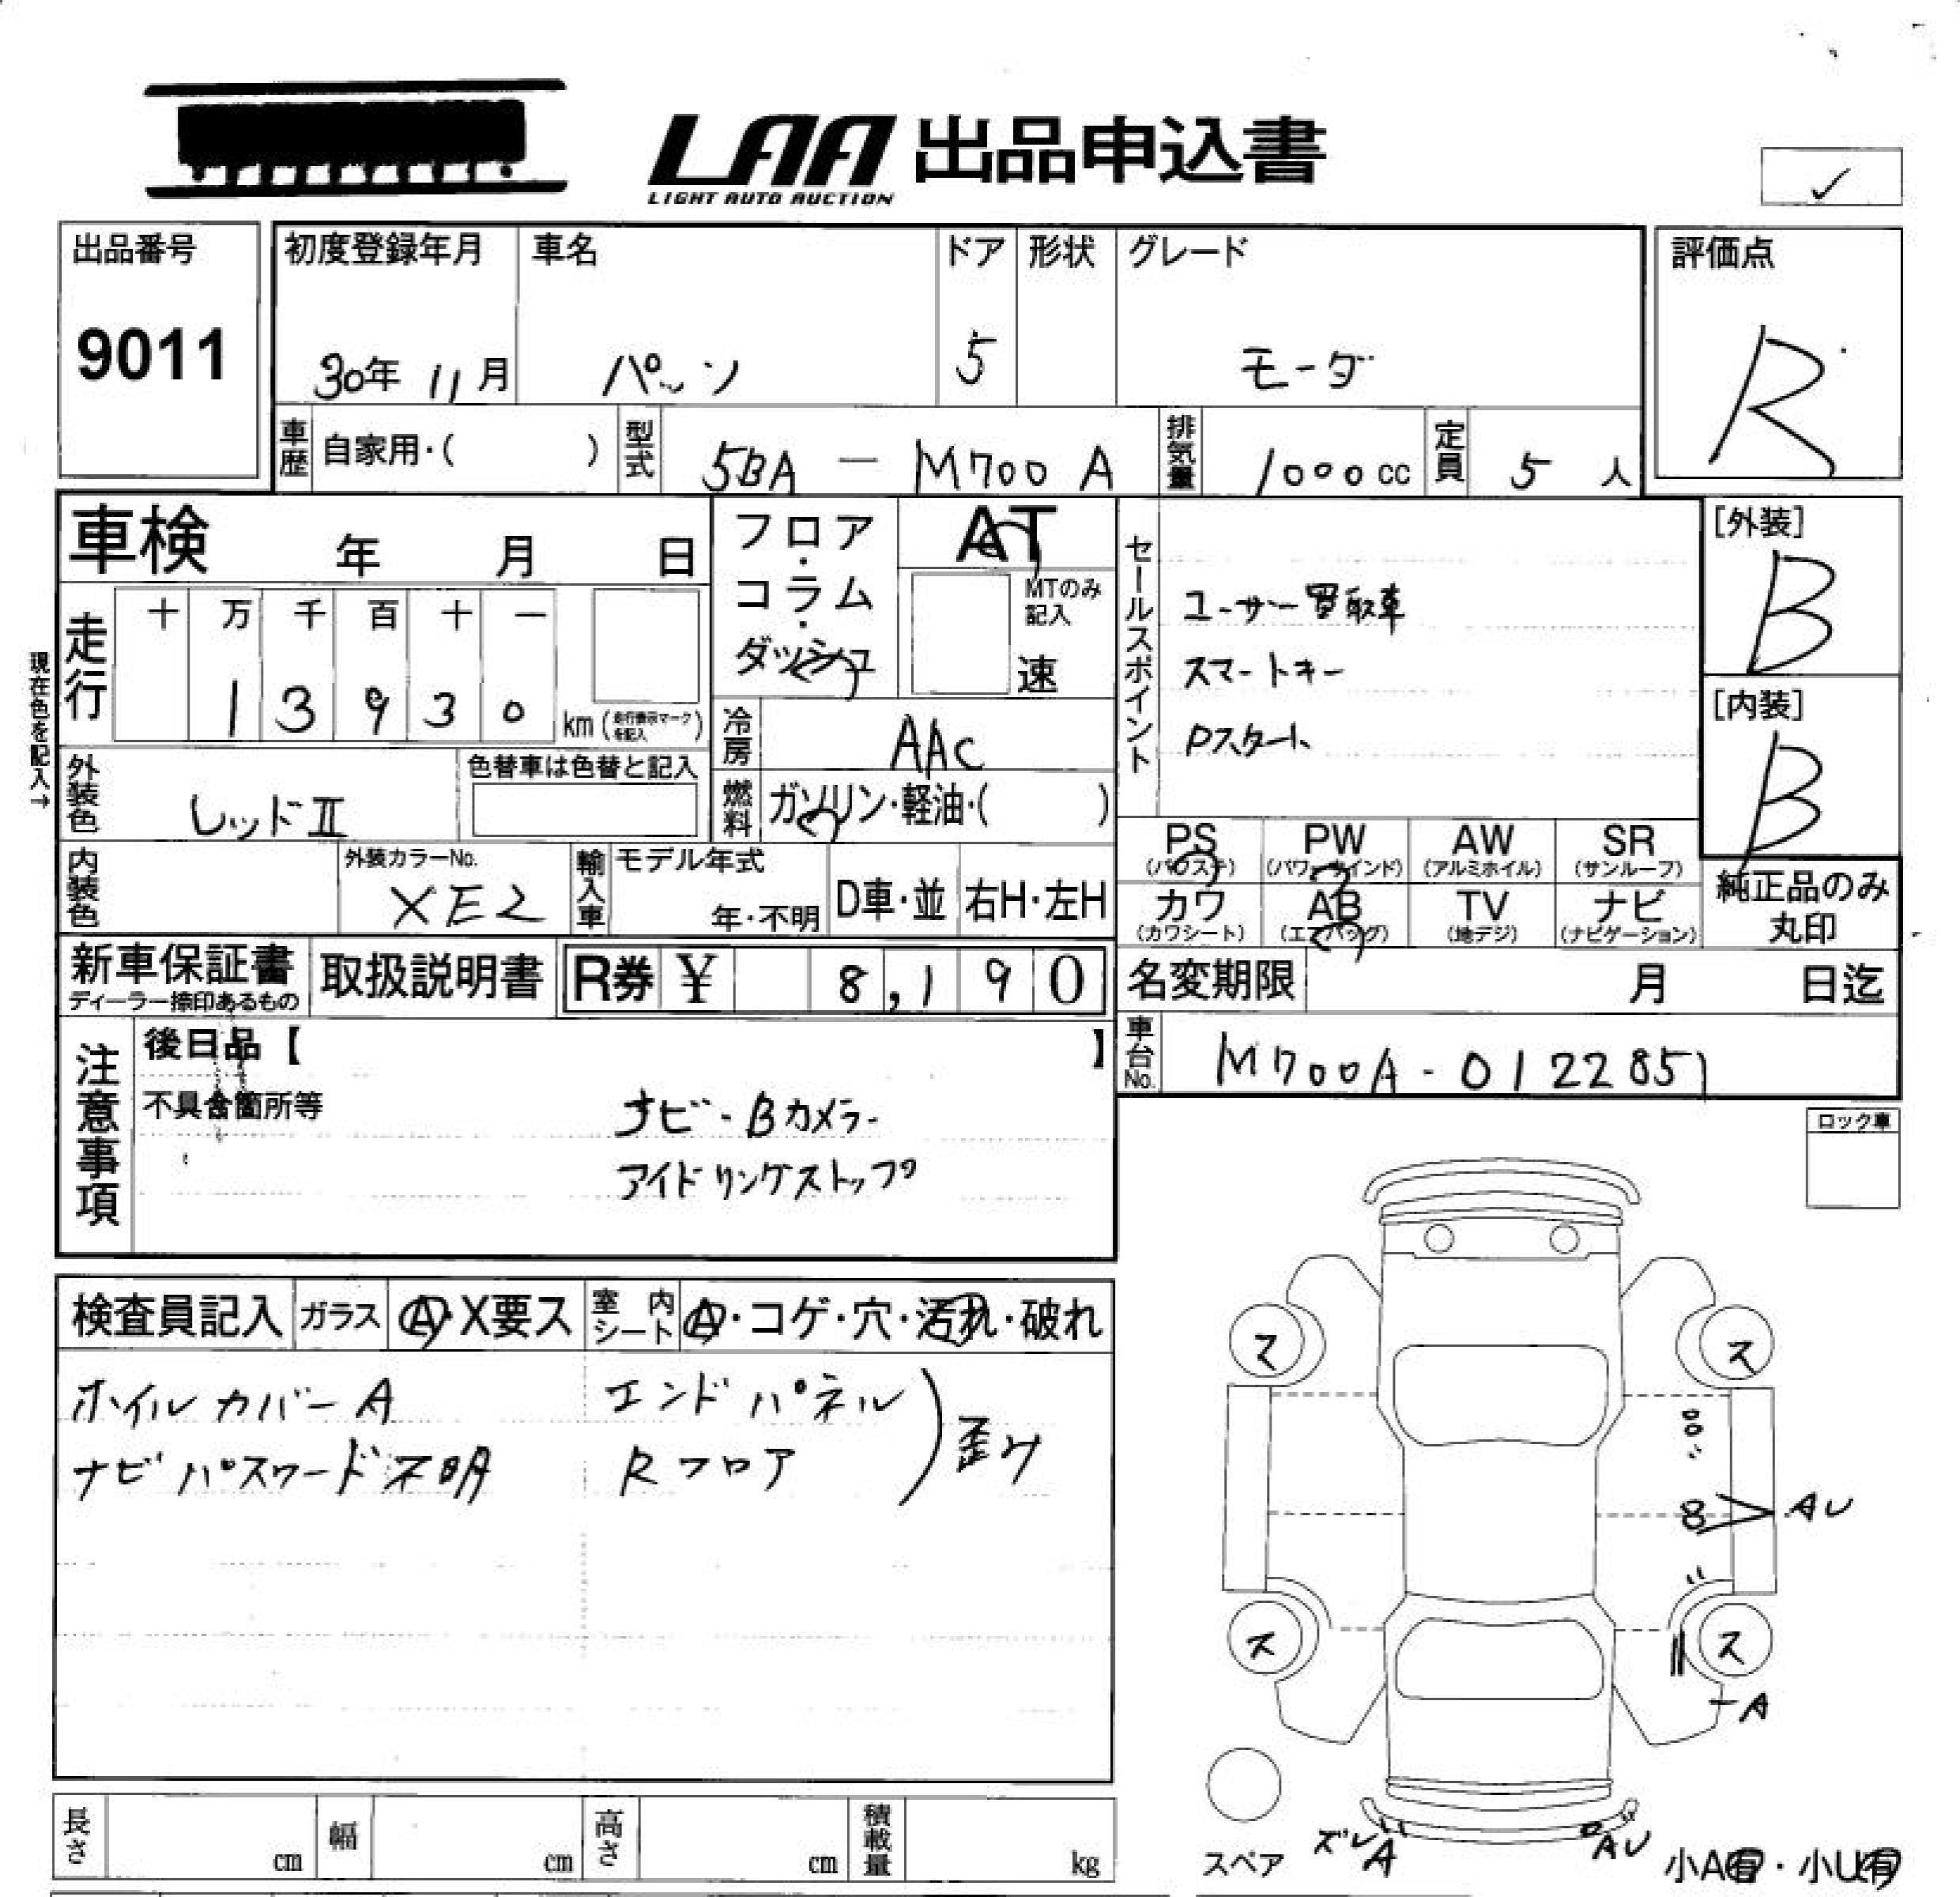 LAA 出品申込書
LIGHT AUTO AUCTION
✓
出品番号
9011
初度登録年月
30年 11月
車名
パッソ
ドア
5
形状
グレード
モーダ
評価点
R
車歴
自家用・( )
型式
5BA - M700A
排気量
1000cc
定員
5人
車検 年 月 日
フロア・コラム・ダッシュ
AT
MTのみ記入
速
セールスポイント
ユーザー買取車
スマートキー
Pスタート
[外装]
B
[内装]
B
現在色を記入→
走行
十 万 千 百 十 一
1 3 9 3 0
km(走行表示マークを記入)
冷房
AAC
外装色
レッドⅡ
色替車は色替と記入
燃料
ガソリン・軽油・( )
PS (パワステ)
PW (パワーウインド)
AW (アルミホイル)
SR (サンルーフ)
カワ (カワシート)
AB (エアバッグ)
TV (地デジ)
ナビ (ナビゲーション)
純正品のみ
丸印
内装色
外装カラーNo.
XE2
輸入車
モデル年式
年・不明
D車・並
右H・左H
新車保証書
ディーラー捺印あるもの
取扱説明書
R券 ¥ 8,190
名変期限 月 日迄
車台No.
M700A-0122851
注意事項
後日品【 】
不具合箇所等
ナビ・Bカメラー
アイドリングストップ
ロック車
検査員記入
ガラス
A・X要ス
室内シート
A・コゲ・穴・汚れ・破れ
ホイルカバーA
エンドパネル
ナビパスワード不明
Rフロア
歪み
マ
ス
8
AU
ス
ス
A
スペア
ズレA
AU
小A有・小U有
長さ cm
幅 cm
高さ cm
積載量 kg